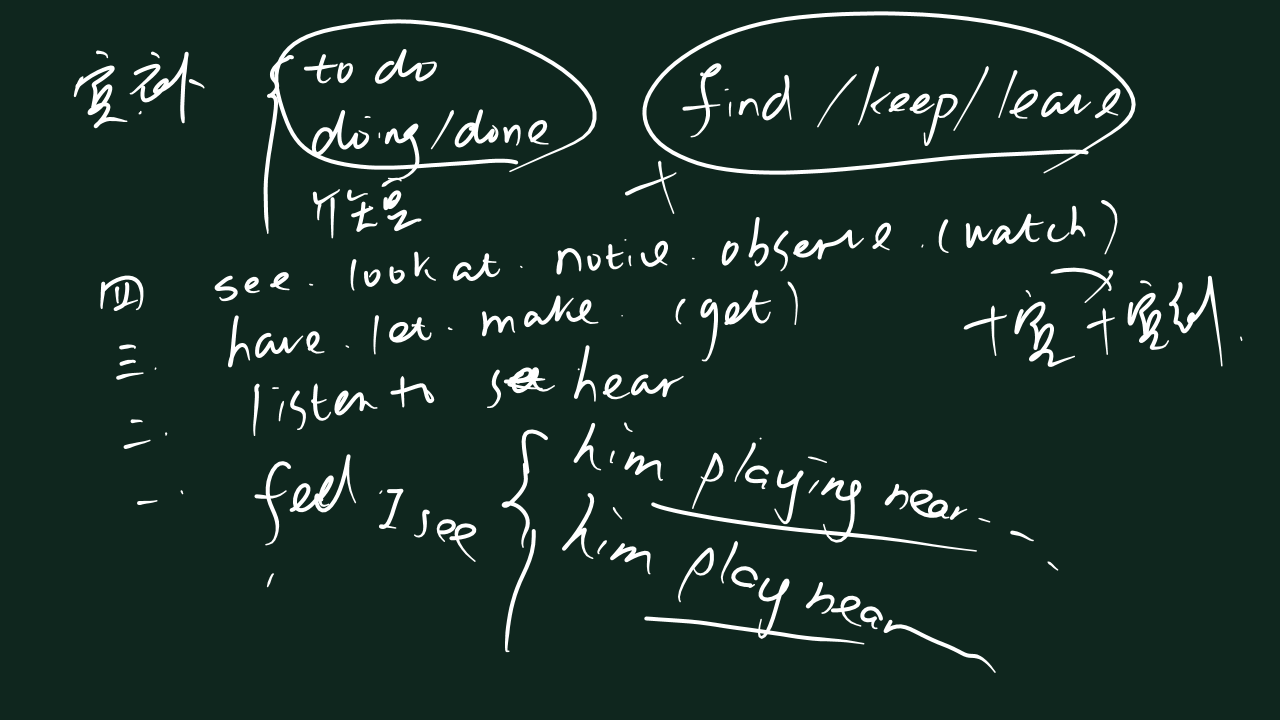 宾补 { to do
doing/done
find /keep/leave
介宾
+
四 see. look at. notice. observe. (watch)
三. have. let. make. (get)
+宾+宾补.
二. listen to hear
一. feel
I see { him playing near...
him play near